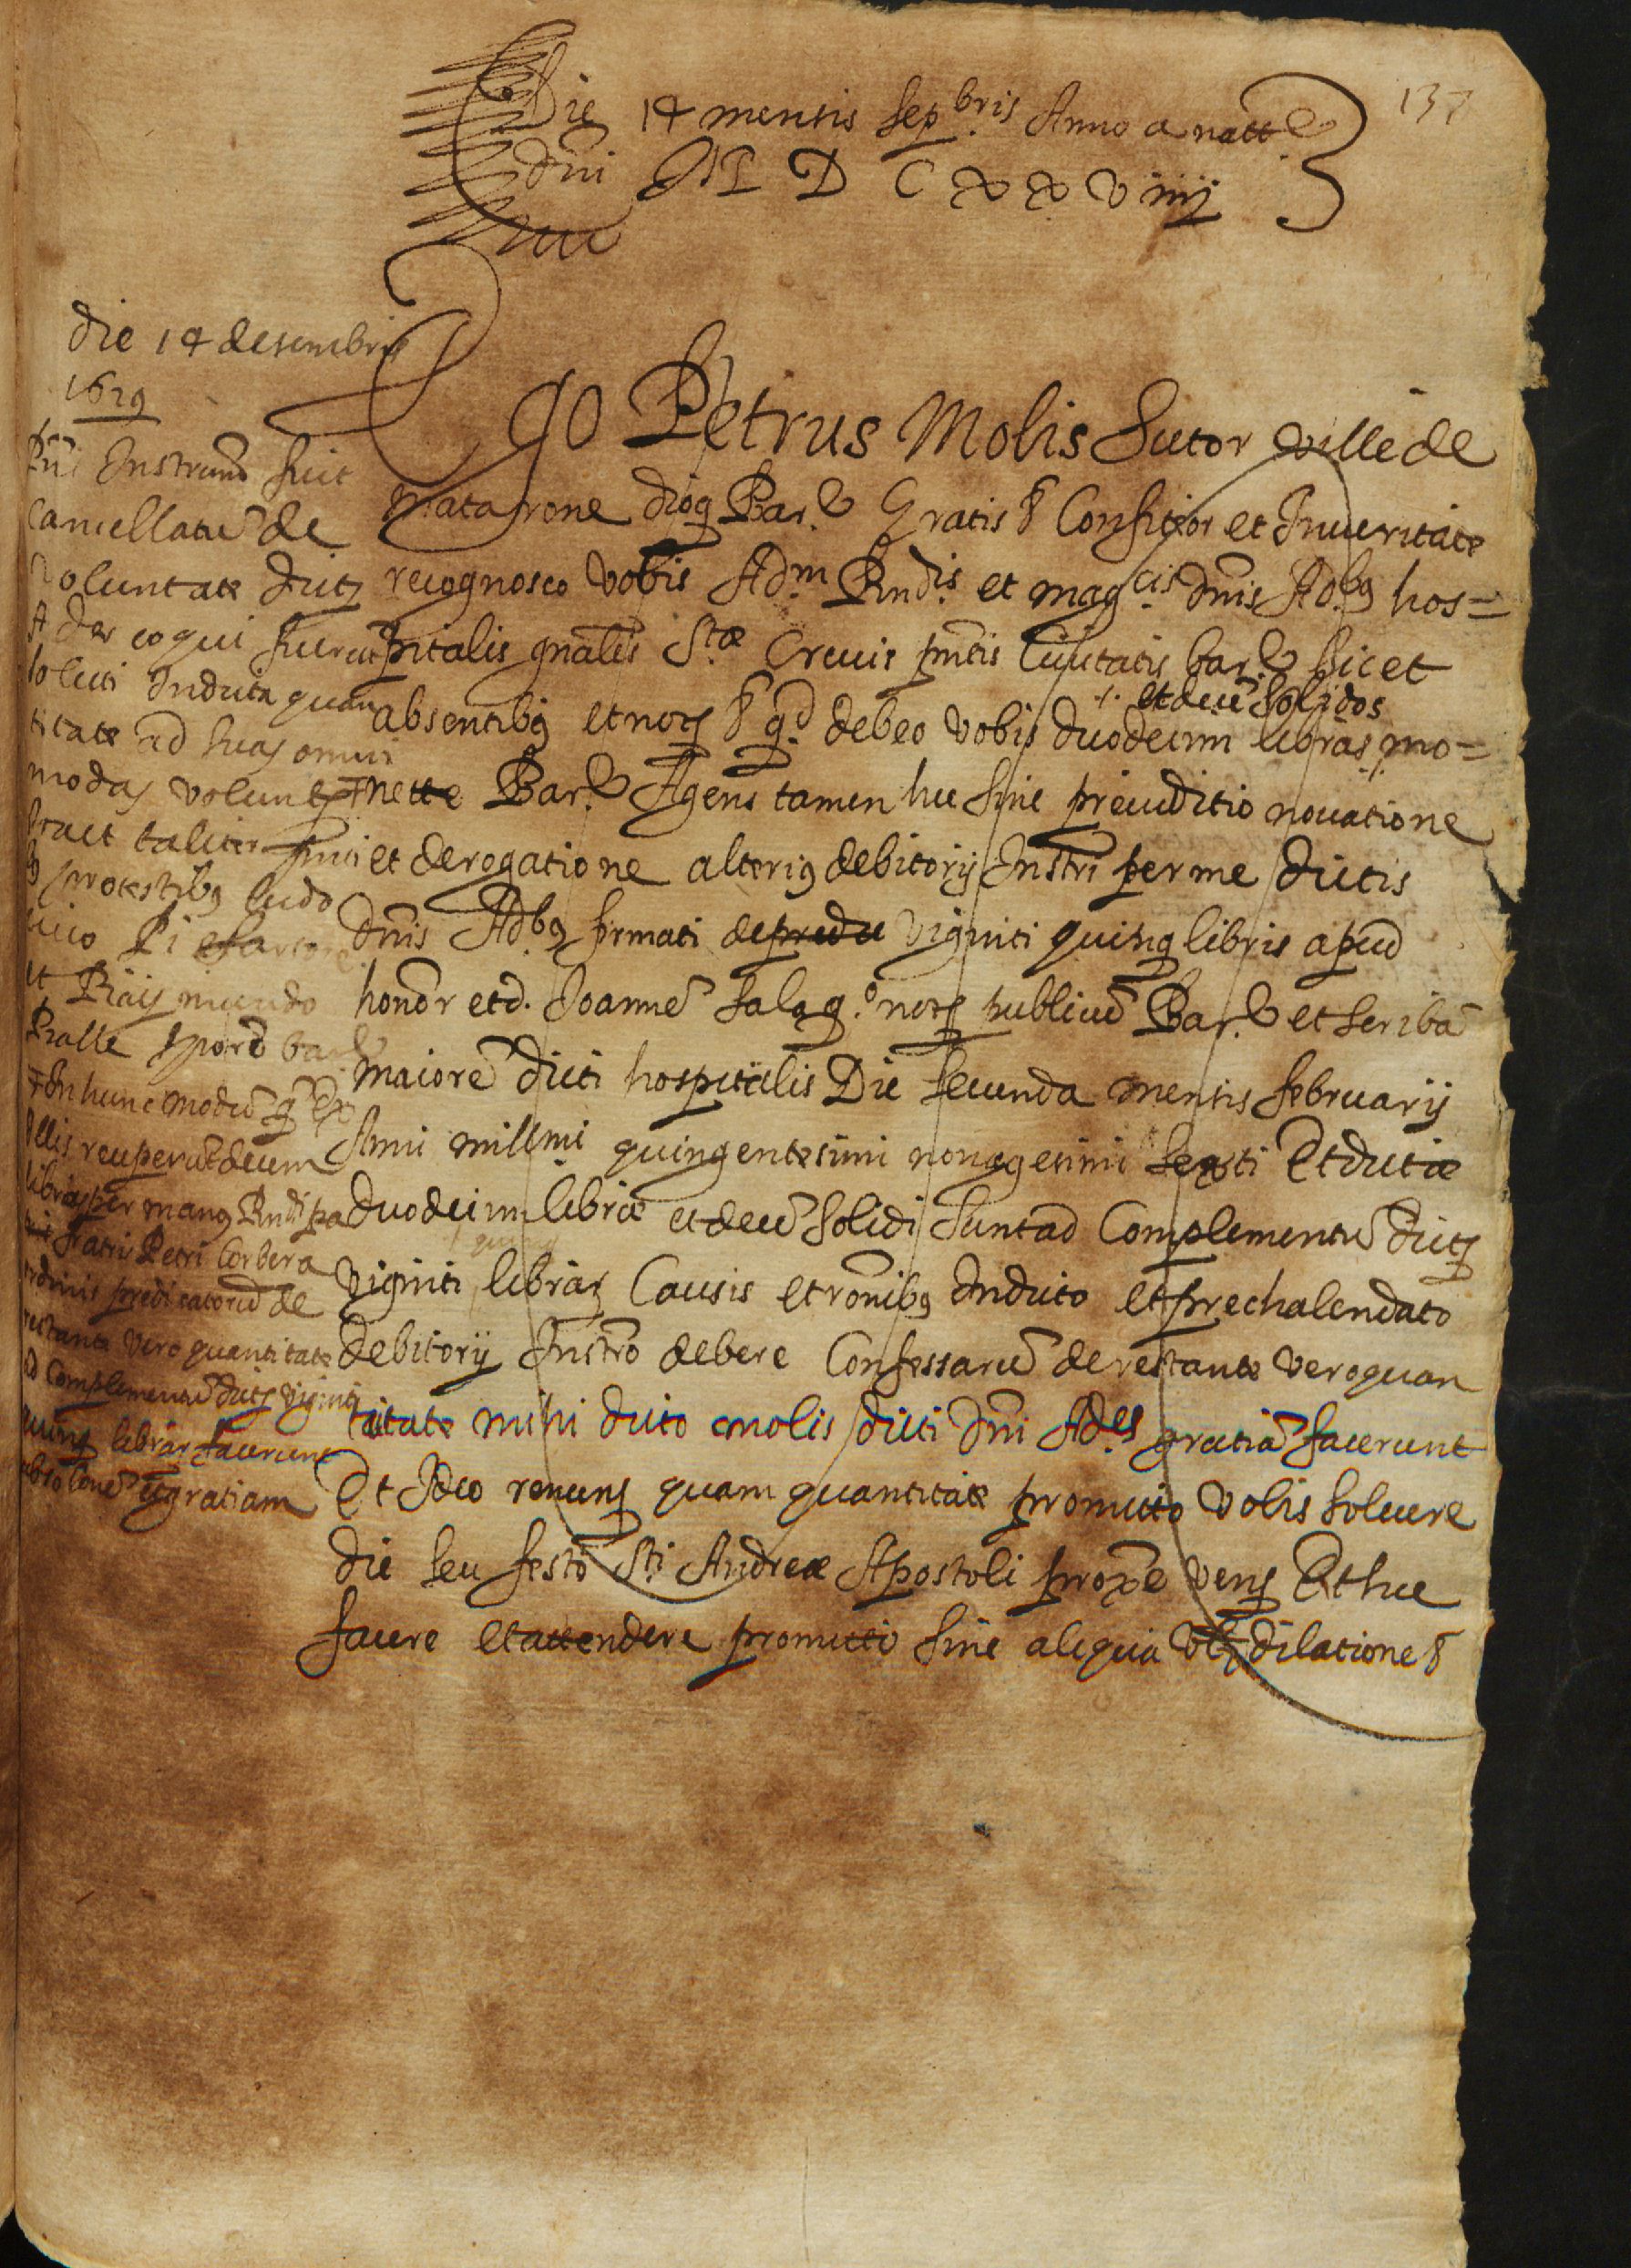 137
Die 14 mensis sepbris Anno a natte
dñi M D C x x viiij
die 14 desembris
1629
Pñs Instrum̃ fuit
Cancellatũ de
Voluntate dictȝ
Ader eo qui fuerunt
soluti Indicta quan
titate ad suas omni
modas volunt
fact taliter
protestibȝ ludo
vico Pi
et Raymundo
Ralle
In hunc modũ q
illis recuperũt decem
libras per manȝ Rndi pa
fratris Petri Corbera
ordinis predicatorũ de
restante vero quantitate
ad Complementũ dictȝ viginti
quinqȝ librar fecerunt
absolonẽ et gratiam
Ego Petrus Molis Sutor ville de
Matarone dioȝ Bar.e Gratis & Confiteor et In veritate
recognosco vobis Adm Rndis et magcis dñis Adbȝ hos=
pitalis gñalis Stæ Crucis pñtis Civitatis bar.e licet
absentibȝ et notȝ & qd debeo vobis duodecim libras mo=
et decẽ Solidos
nette Bar.e Agens tamen hec sine preiuditio novatione
et derogatione alteriȝ debitorij Instri per me dictis
dñis Adbȝ firmati de predce viginti quinqȝ libris apud
honor et d. Joannẽ Sala q.o notȝ publicũ Bar.e et scribã
maiorẽ dicti hospitalis Die secunda mensis februarij
Anni millmi quingentesimi nonagesimi sexti Et dictæ
duodecim libræ et decẽ solidi sunt ad Complementũ dictȝ
viginti librarȝ Causis et rõnibȝ Indicto et prechalendato
quinqȝ
debitorij Instrõ debere Confessarũ de restante vero quan
titate mihi dicto molis dicti Dñi Ades gratiã fecerunt
Et Ideo renunȝ quam quantitate promitto vobis solvere
die seu festõ Sti Andreæ Apostoli proxe venȝ Et hec
facere et attendere promitto sine aliqua dilatione &